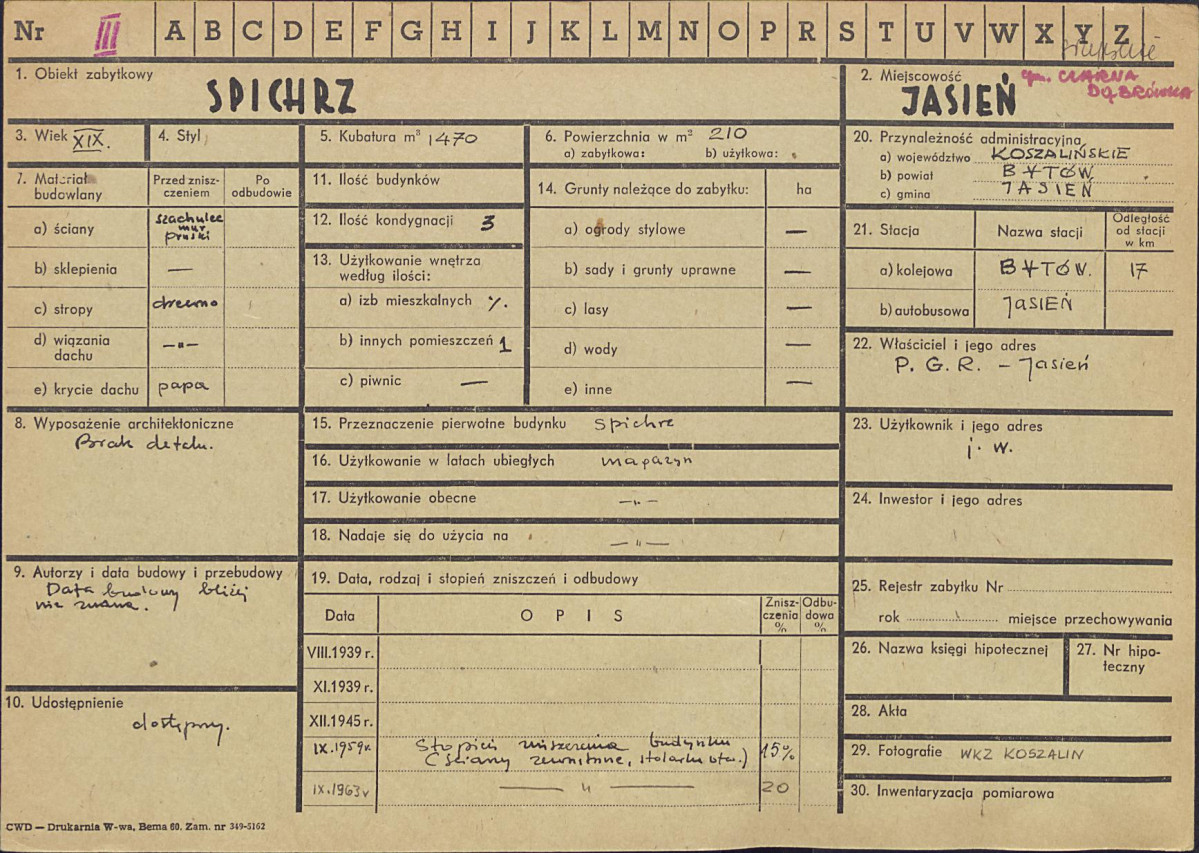 Nr III A B C D E F G H I J K L M N O P R S T U V W X Y Z
1. Obiekt zabytkowy
SPICHRZ
2. Miejscowość
gm. CZARNA
DĄBRÓWKA
JASIEŃ
3. Wiek XIX.
4. Styl
5. Kubatura m³ 1470
6. Powierzchnia w m² 210
a) zabytkowa: b) użytkowa:
7. Materiał budowlany
Przed zniszczeniem
Po odbudowie
a) ściany szachulec mur pruski
b) sklepienia —
c) stropy drewno
d) wiązania dachu —"—
e) krycie dachu papa
8. Wyposażenie architektoniczne
Brak detalu.
9. Autorzy i data budowy i przebudowy
Data budowy bliżej
nie znana.
10. Udostępnienie
dostępny.
11. Ilość budynków
12. Ilość kondygnacji 3
13. Użytkowanie wnętrza
według ilości:
a) izb mieszkalnych %.
b) innych pomieszczeń 1
c) piwnic —
14. Grunty należące do zabytku: ha
a) ogrody stylowe —
b) sady i grunty uprawne —
c) lasy —
d) wody —
e) inne —
15. Przeznaczenie pierwotne budynku spichrz
16. Użytkowanie w latach ubiegłych magazyn
17. Użytkowanie obecne —"—
18. Nadaje się do użycia na —"—
19. Data, rodzaj i stopień zniszczeń i odbudowy
Data OPIS Zniszczenia % Odbudowa %
VIII.1939 r.
XI.1939 r.
XII.1945 r.
IX.1959r. Stopień zniszczenia budynku 15%
(ściany zewnętrzne, stolarka otw.)
IX.1963r — " — 20
20. Przynależność administracyjna
a) województwo KOSZALIŃSKIE
b) powiat BYTÓW
c) gmina JASIEŃ
21. Stacja Nazwa stacji Odległość od stacji w km
a) kolejowa BYTÓW. 17
b) autobusowa JASIEŃ
22. Właściciel i jego adres
P. G. R. – Jasień
23. Użytkownik i jego adres
j. w.
24. Inwestor i jego adres
25. Rejestr zabytku Nr
rok miejsce przechowywania
26. Nazwa księgi hipotecznej
27. Nr hipoteczny
28. Akta
29. Fotografie WKZ KOSZALIN
30. Inwentaryzacja pomiarowa
CWD — Drukarnia W-wa, Bema 60. Zam. nr 349-5162